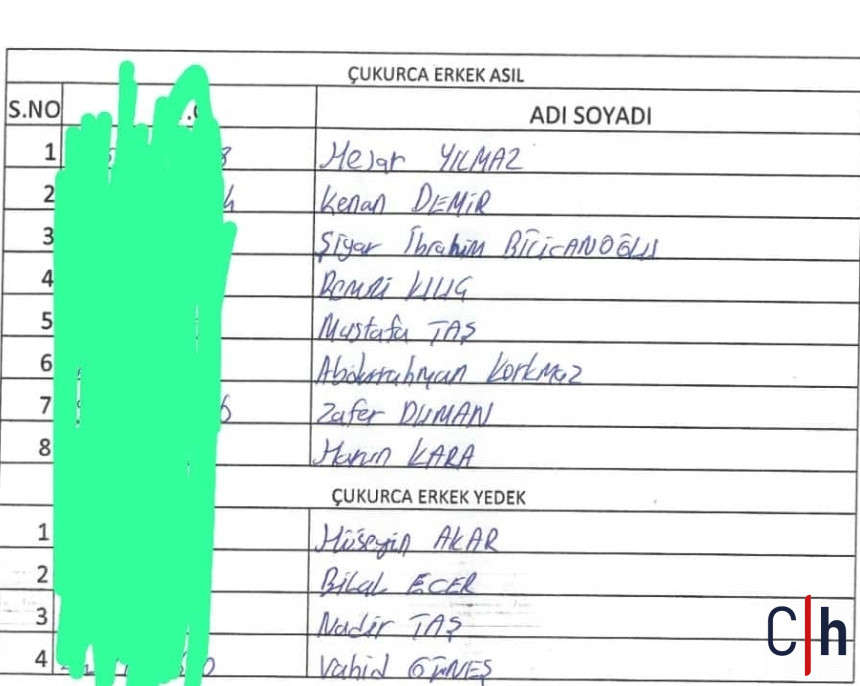 ÇUKURCA ERKEK ASIL
S.NO ADI SOYADI
1 Hejar YILMAZ
2 Kenan DEMİR
3 Şiyar İbrahim BİLİCANOĞLU
4 Remzi KILIÇ
5 Mustafa TAŞ
6 Abdurrahman Korkmaz
7 Zafer DUMAN
8 Harun KARA
ÇUKURCA ERKEK YEDEK
1 Hüseyin AKAR
2 Bilal ECER
3 Nadir TAŞ
4 Vahid GÜNEŞ
C|h